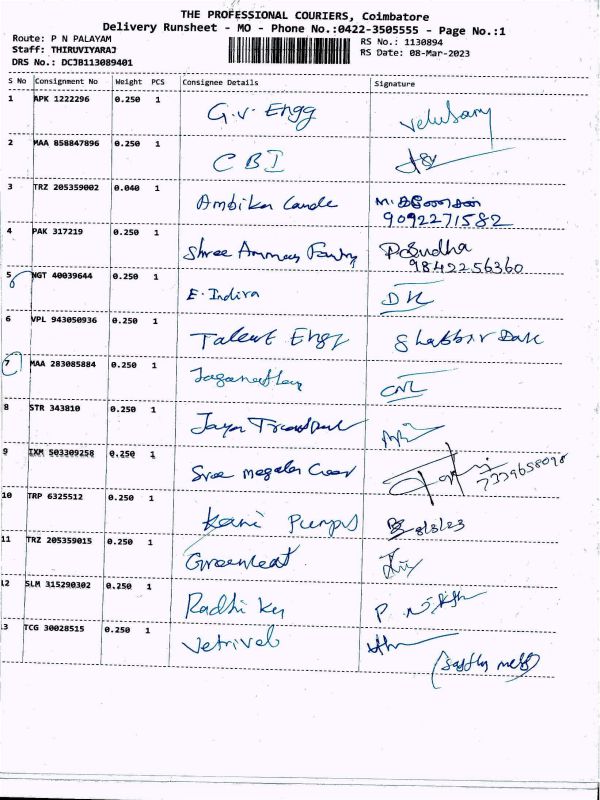 THE PROFESSIONAL COURIERS, Coimbatore
Delivery Runsheet - MO - Phone No.:0422-3505555 - Page No.:1
Route: P N PALAYAM
RS No.: 1130894
Staff: THIRUVIYARAJ
RS Date: 08-Mar-2023
DRS No.: DCJB113089401
S No Consignment No Weight PCS Consignee Details Signature
1 APK 1222296 0.250 1 G.V. Engg Velusamy
2 MAA 858847896 0.250 1 CBI
3 TRZ 205359002 0.040 1 Ambika
9092271582
4 PAK 317219 0.250 1 Shree P. Sudha
9842256360
5 NGT 40039644 0.250 1 E. Indira
6 VPL 943050936 0.250 1 Talent Engg
7 MAA 283085884 0.250 1 Jaganathan
8 STR 343810 0.250 1
9 IXM 503309258 0.250 1 Sree
10 TRP 6325512 0.250 1 Kani Pumps 8/3/23
11 TRZ 205359015 0.250 1 Greenleaf
12 SLM 315290302 0.250 1
13 TCG 30028515 0.250 1 Vetrivel